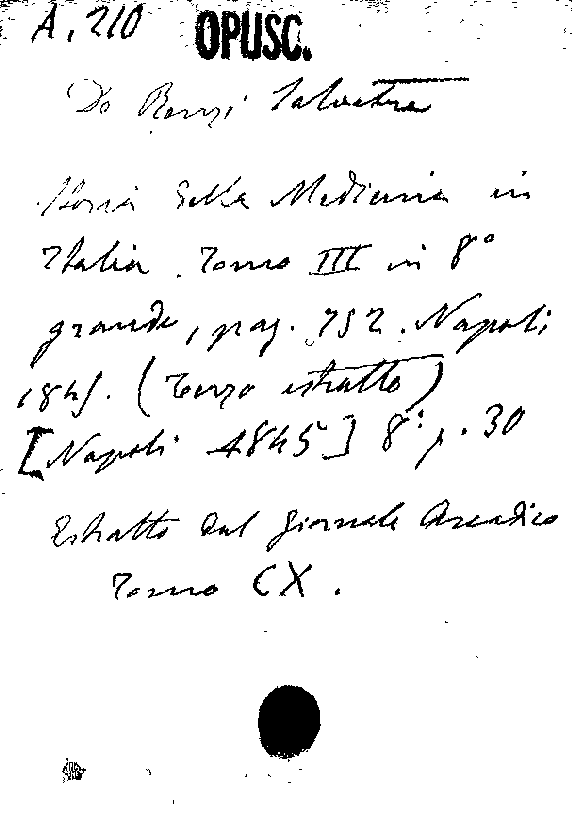 A. 210 OPUSC.
De Renzi Salvatore
Storia della Medicina in
Italia. Tomo III in 8°
grande, pag. 752. Napoli
1845. (Terzo estratto)
[Napoli 1845] 8° p. 30
Estratto dal Giornale Arcadico
Tomo CX.